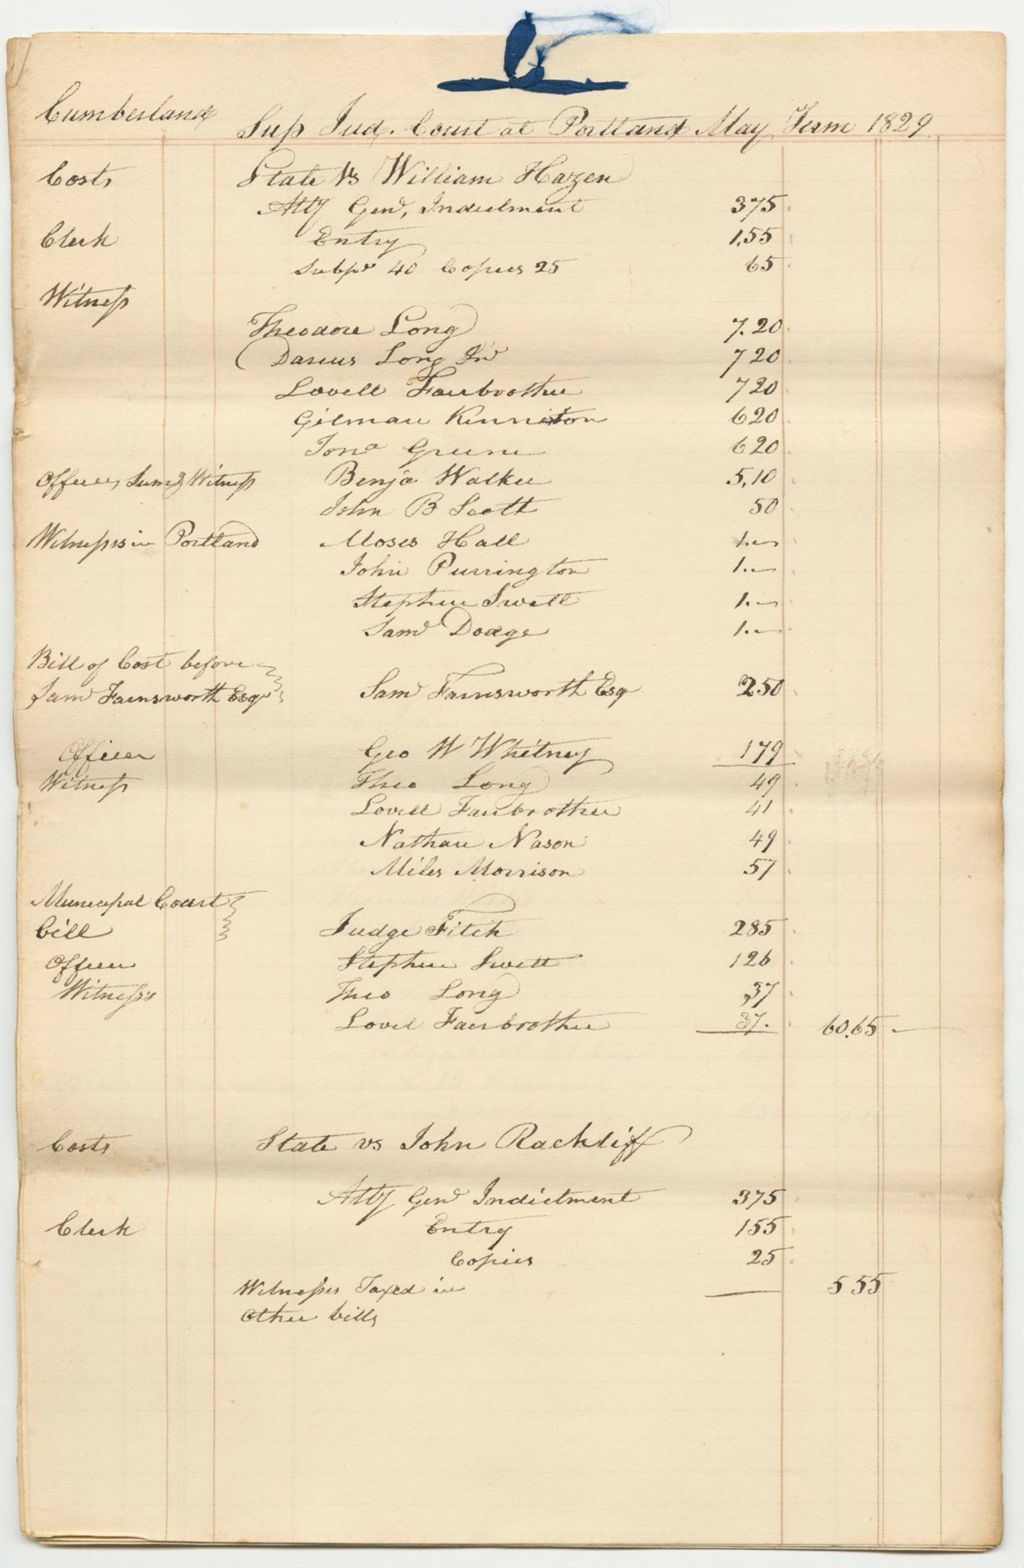 Cumberland Sup Jud. Court at Portland May Term 1829
Costs State vs William Hazen
Atty Genl, Indictment 375
Clerk Entry 1,55
Subps 40 Copies 25 65
Witness
Theodore Long 7.20
Darius Long Jnr 7 20
Lovell Fairbrother 720
Gilman Kenniston 620
Jona Greene 620
Officers Sumg Witness Benja Walker 5,10
John B Scott 50
Witnesses in Portland Moses Hall 1.—
John Purrington 1.—
Stephen Swett 1.—
Saml Dodge 1.—
Bill of Cost before
Saml Farnsworth Esqr Saml Farnsworth Esq 250
Officer Geo W Whitney 179
Witness Theo Long 49
Lovell Fairbrother 41
Nathan Nason 49
Miles Morrison 57
Municipal Court
bill Judge Fitch 285
Officer Stephen Swett 126
Witness's Theo Long ,37
Lovel Fairbrother 37. 60.65 —
Costs State vs John Rackliff
Atty Genl Indictment 375
Clerk Entry 155
Copies 25
Witnesses Taxed in 5 55
other bills